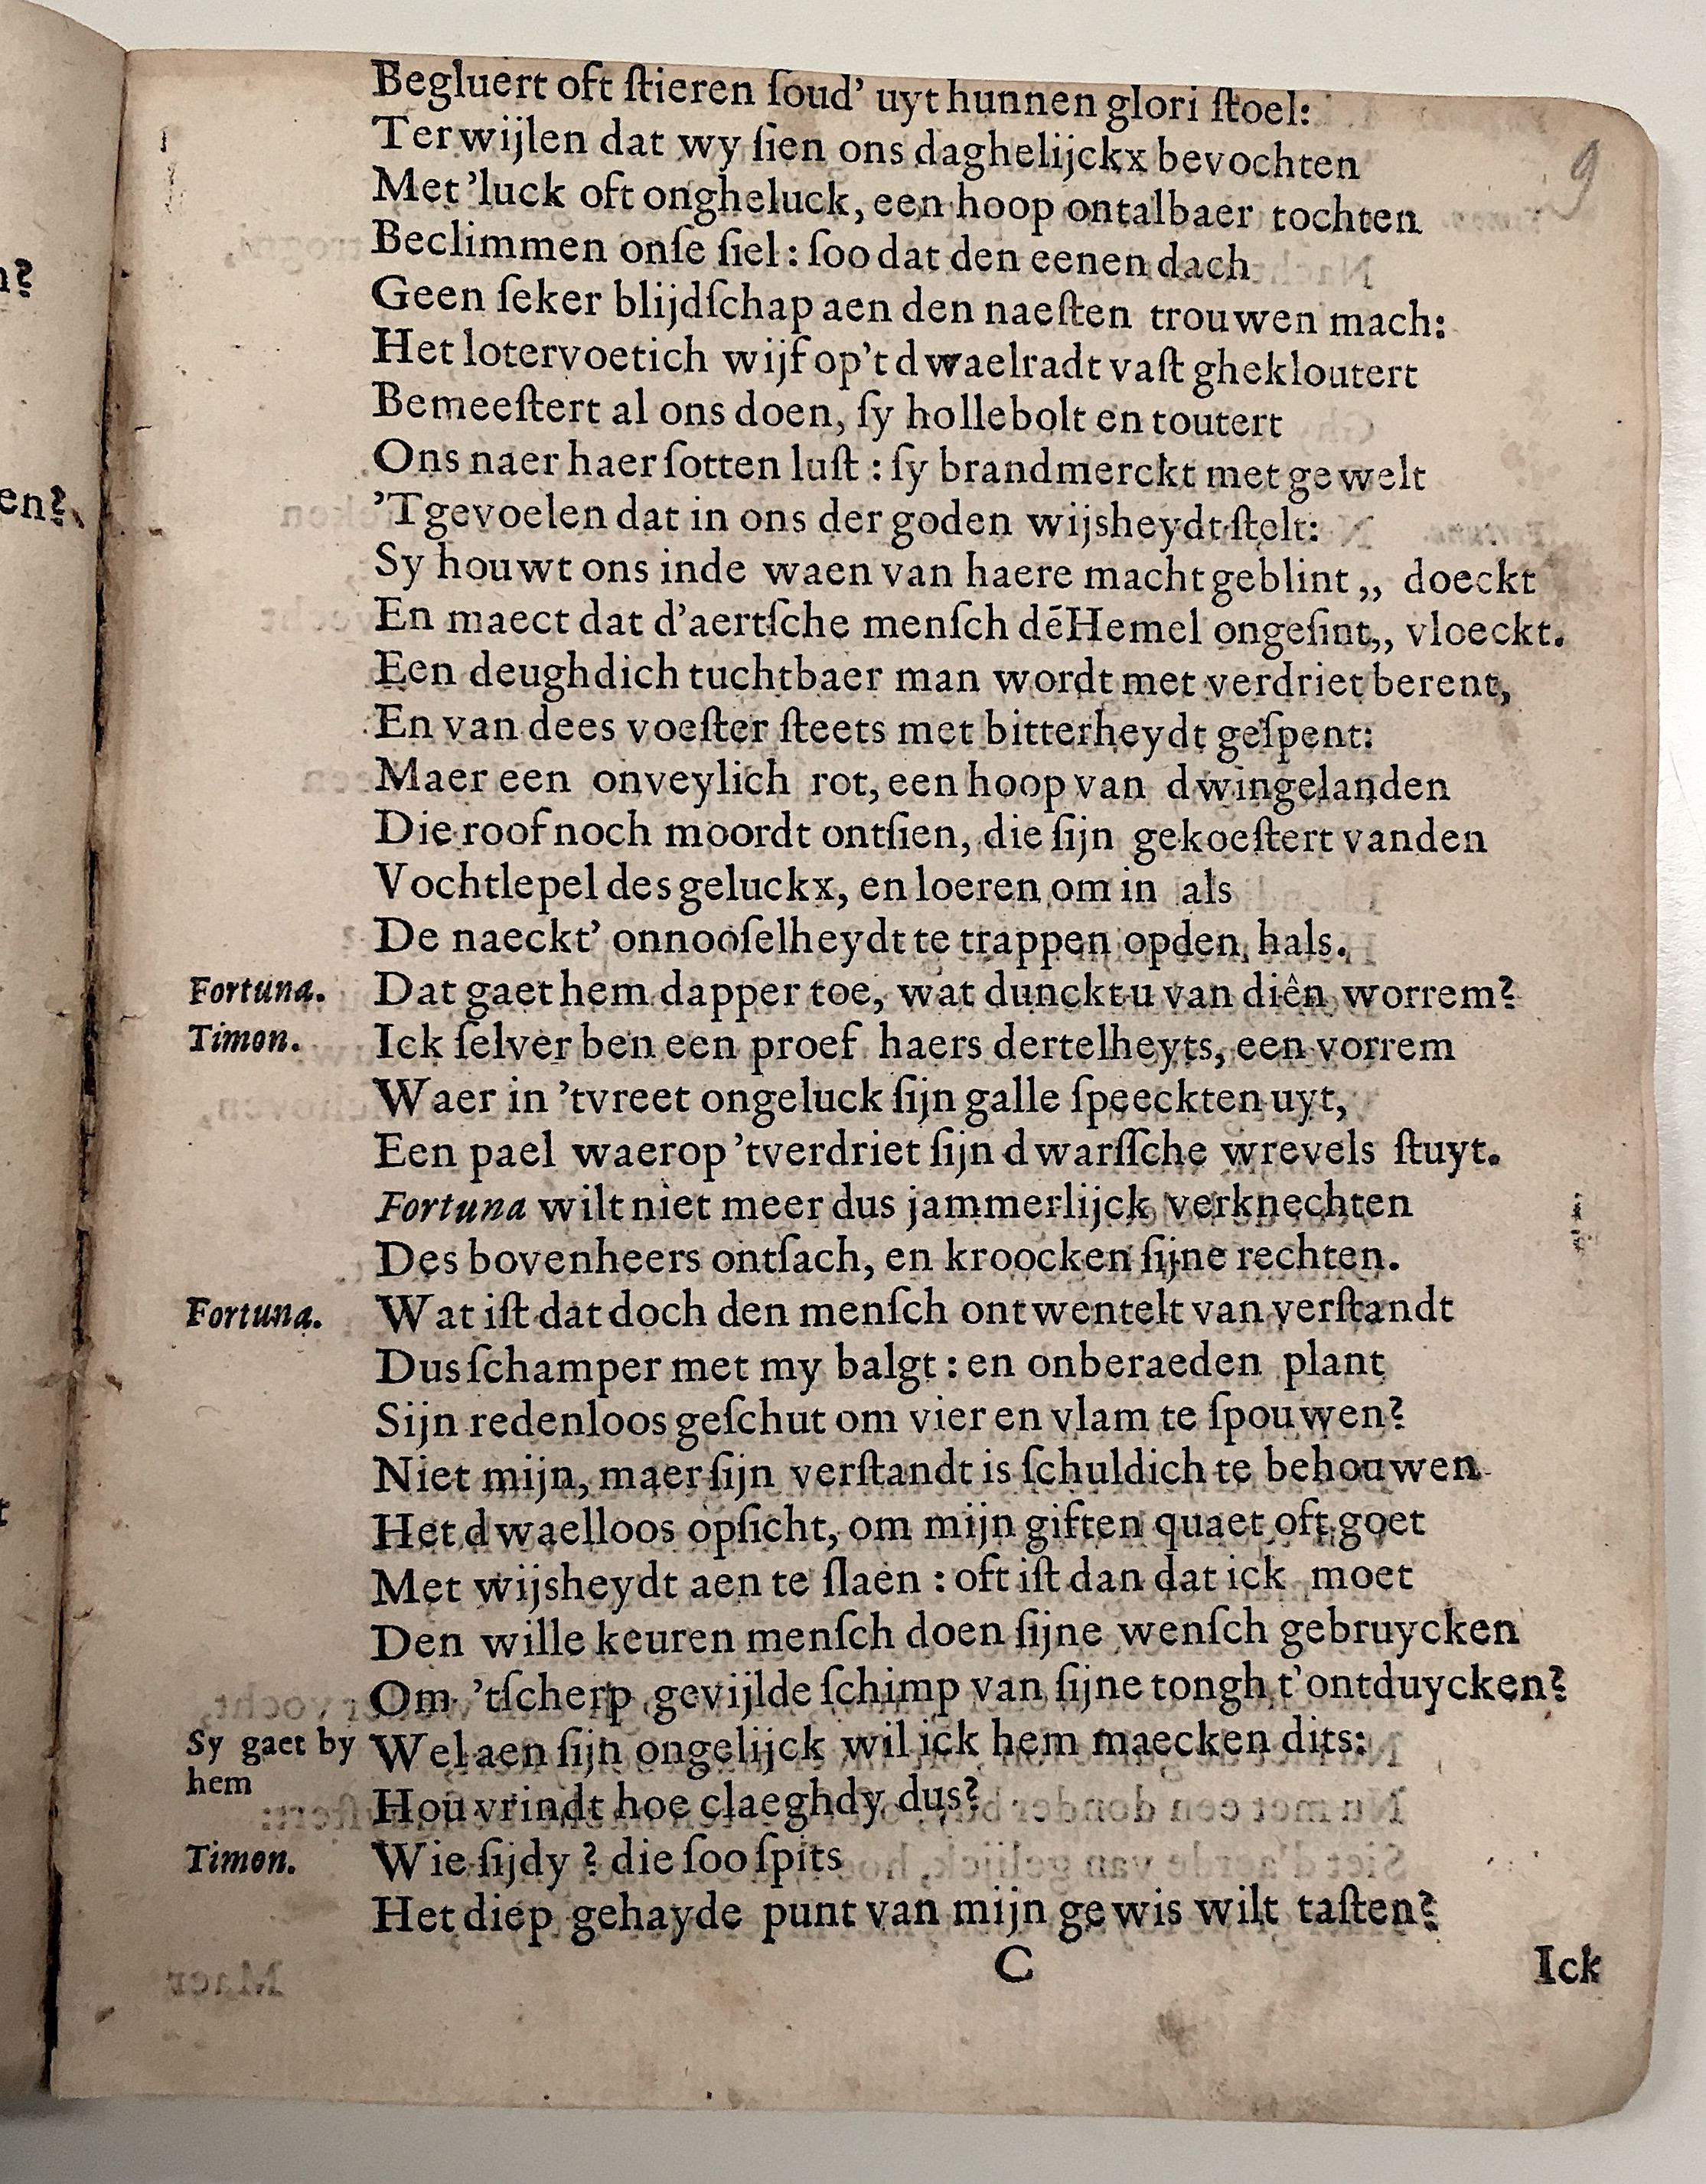 9
Begluert oft ſtieren ſoud' uyt hunnen glori ſtoel:
Terwijlen dat wy ſien ons daghelijckx bevochten
Met 'luck oft ongheluck, een hoop ontalbaer tochten
Beclimmen onſe ſiel: ſoo dat den eenen dach
Geen ſeker blijdſchap aen den naeſten trouwen mach:
Het lotervoetich wijf op't dwaelradt vaſt ghekloutert
Bemeeſtert al ons doen, ſy hollebolt en toutert
Ons naer haer ſotten luſt: ſy brandmerckt met gewelt
'Tgevoelen dat in ons der goden wijsheydt ſtelt:
Sy houwt ons inde waen van haere macht geblint,, doeckt
En maect dat d'aertſche menſch dēHemel ongeſint,, vloeckt.
Een deughdich tuchtbaer man wordt met verdriet berent,
En van dees voeſter ſteets met bitterheydt geſpent:
Maer een onveylich rot, een hoop van dwingelanden
Die roof noch moordt ontſien, die ſijn gekoeſtert vanden
Vochtlepel des geluckx, en loeren om in als
De naeckt' onnooſelheydt te trappen opden hals.
Fortuna. Dat gaet hem dapper toe, wat dunckt u van diên worrem?
Timon. Ick ſelver ben een proef haers dertelheyts, een vorrem
Waer in 'tvreet ongeluck ſijn galle ſpeeckten uyt,
Een pael waerop 'tverdriet ſijn dwarſſche wrevels ſtuyt.
Fortuna wilt niet meer dus jammerlijck verknechten
Des bovenheers ontſach, en kroocken ſijne rechten.
Fortuna. Wat iſt dat doch den menſch ontwentelt van verſtandt
Dus ſchamper met my balgt: en onberaeden plant
Sijn redenloos geſchut om vier en vlam te ſpouwen?
Niet mijn, maer ſijn verſtandt is ſchuldich te behouwen
Het dwaelloos opſicht, om mijn giften quaet oft goet
Met wijsheydt aen te ſlaen: oft iſt dan dat ick moet
Den wille keuren menſch doen ſijne wenſch gebruycken
Om 'tſcherp gevijlde ſchimp van ſijne tongh t'ontduycken?
Sy gaet by hem Wel aen ſijn ongelijck wil ick hem maecken dits:
Hou vrindt hoe claeghdy dus?
Timon. Wie ſijdy? die ſoo ſpits
Het diep gehayde punt van mijn gewis wilt taſten?
C Ick